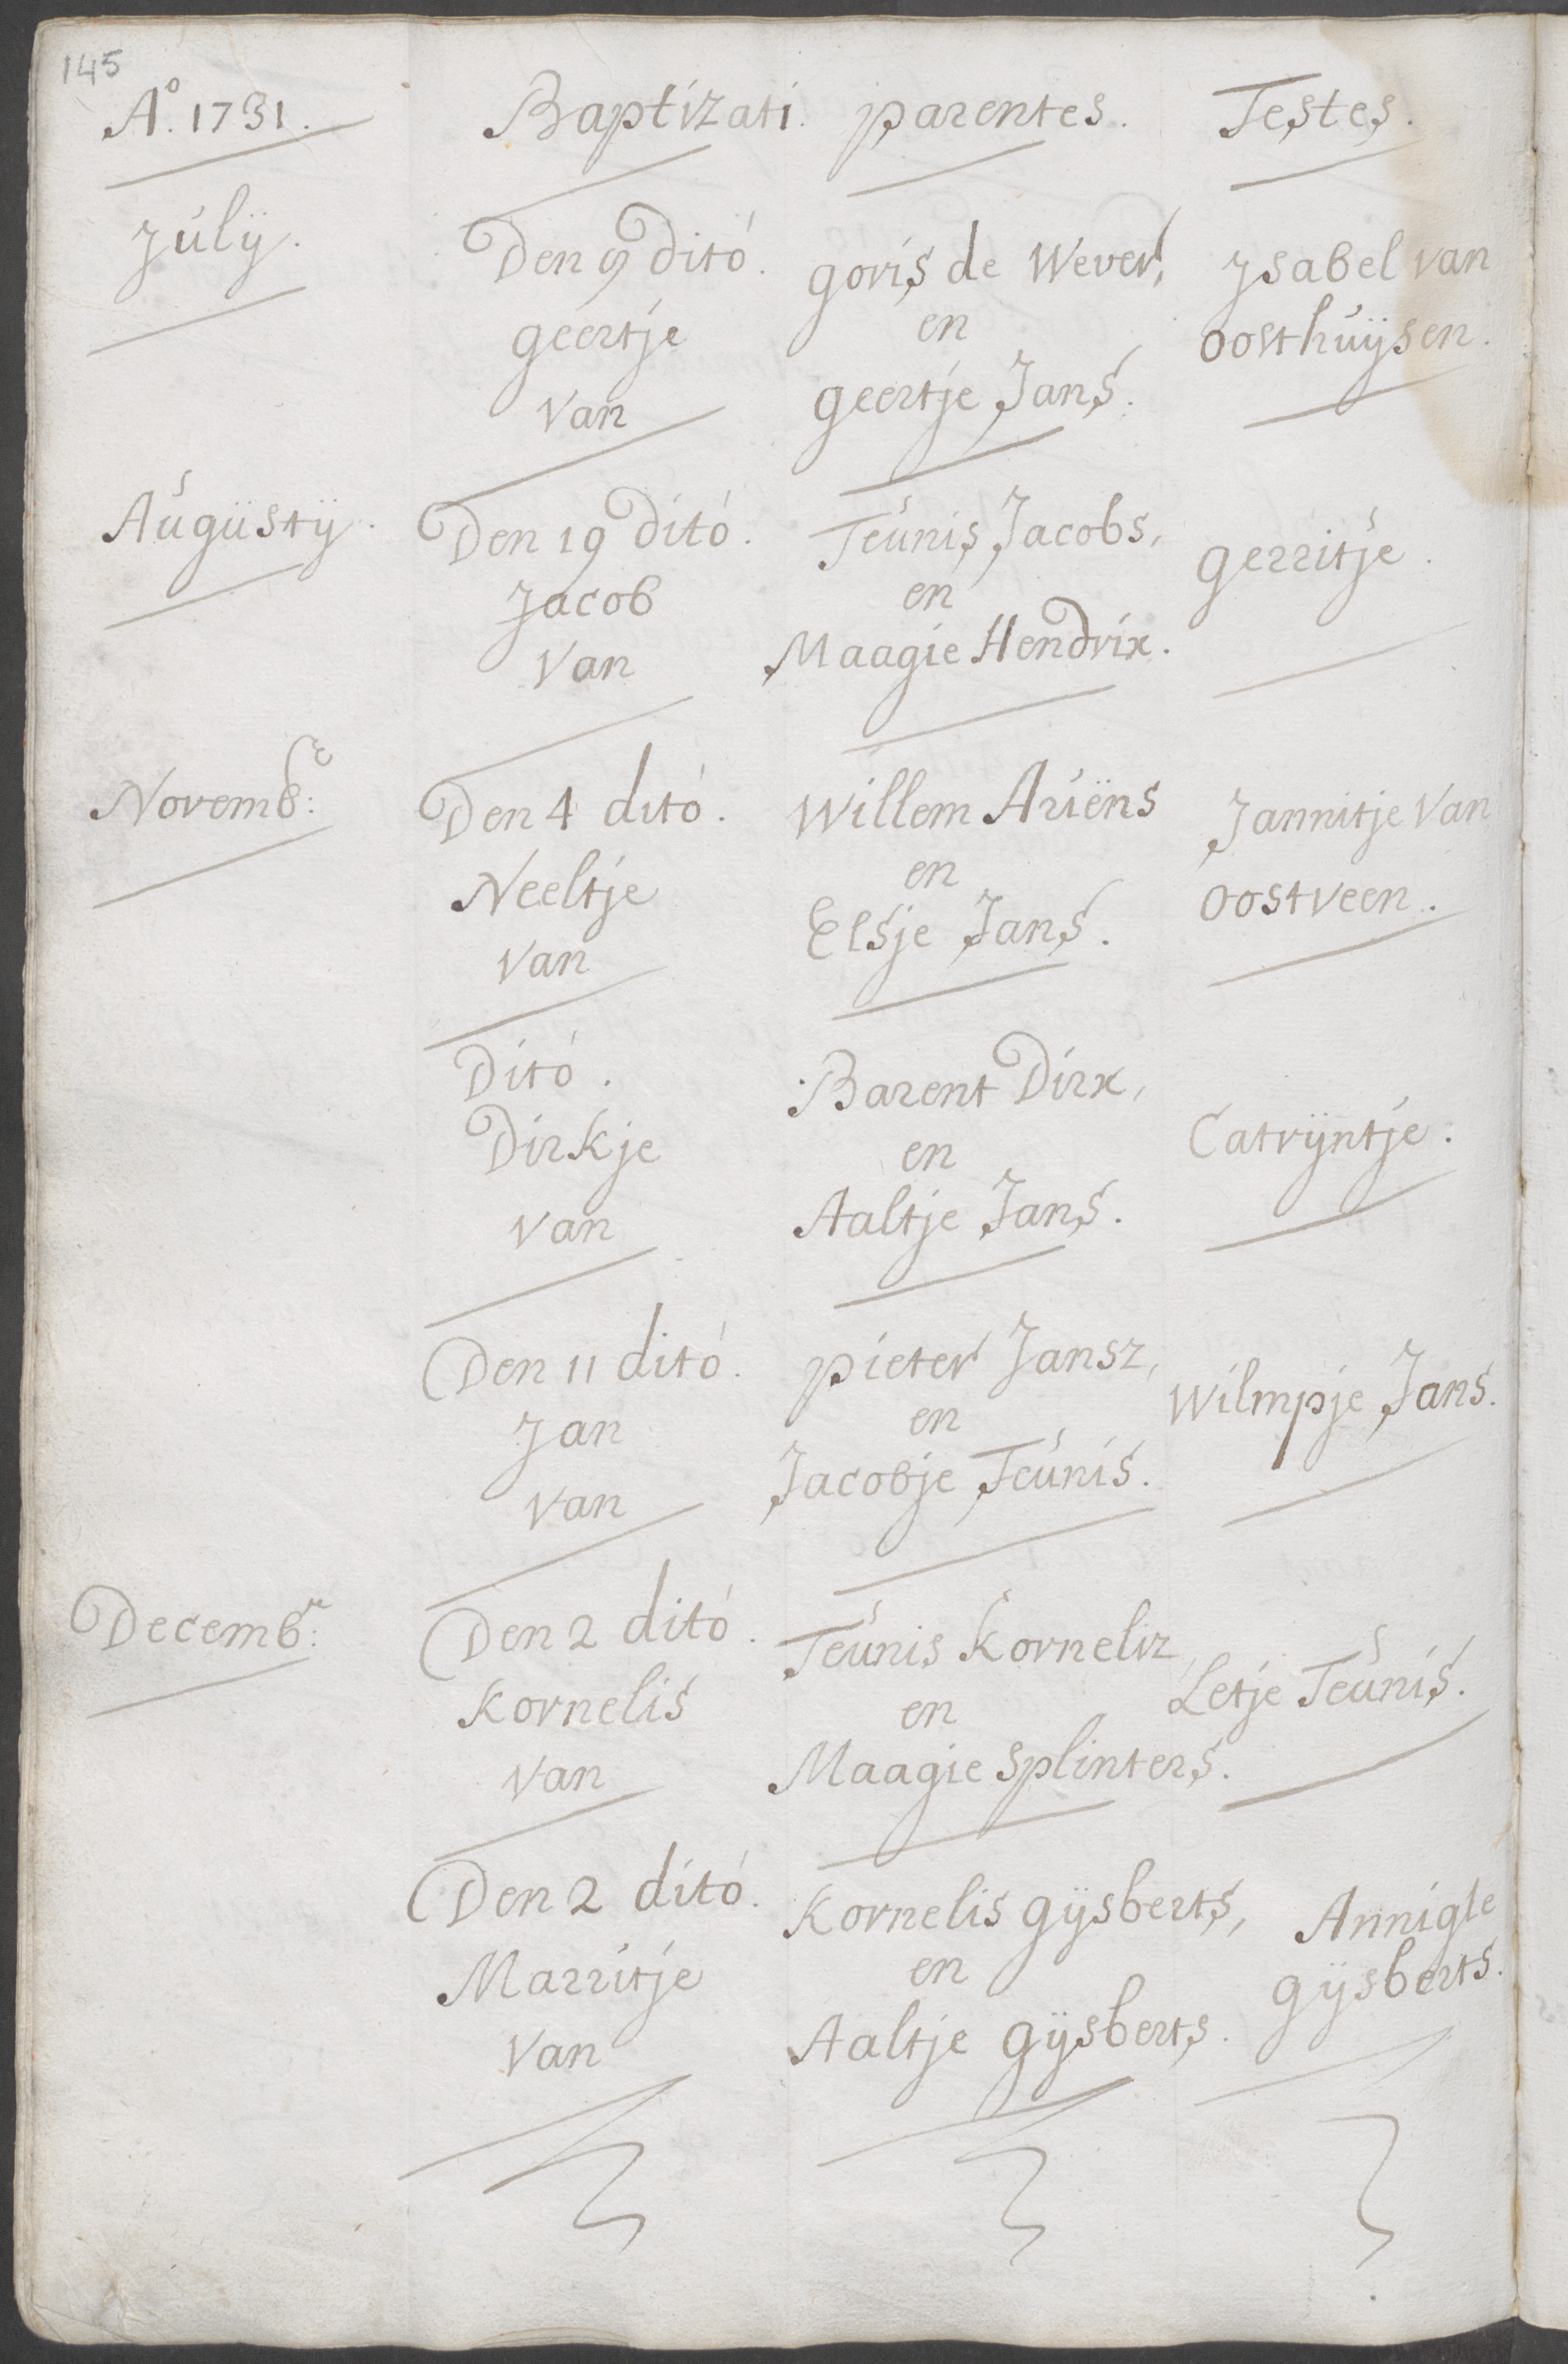 145
A° 1731. Baptizati. parentes. Testes.
July.
Den 9 dito.
geertje
van
goris de Wever,
en
geertje Jans.
Ysabel van
oosthuÿsen.
Augustÿ.
Den 19 dito.
Jacob
van
Teunis Jacobs,
en
Maagie Hendrix.
gerritje.
Novembr:
Den 4 dito.
Neeltje
van
Willem Ariëns
en
Elsje Jans.
Jannitje van
oostveen.
Dito.
Dirkje
van
Barent Dirx,
en
Aaltje Jans.
Catrÿntje.
Den 11 dito.
Jan
van
pieter Jansz,
en
Jacobje Teunis.
Wilmpje Jans.
Decembr:
Den 2 dito.
Kornelis
van
Teunis Korneliz,
en
Maagie Splinters.
Letje Teunis.
Den 2 dito.
Marritje
van
Kornelis gÿsberts,
en
Aaltje gÿsberts.
Annigle
gÿsberts.